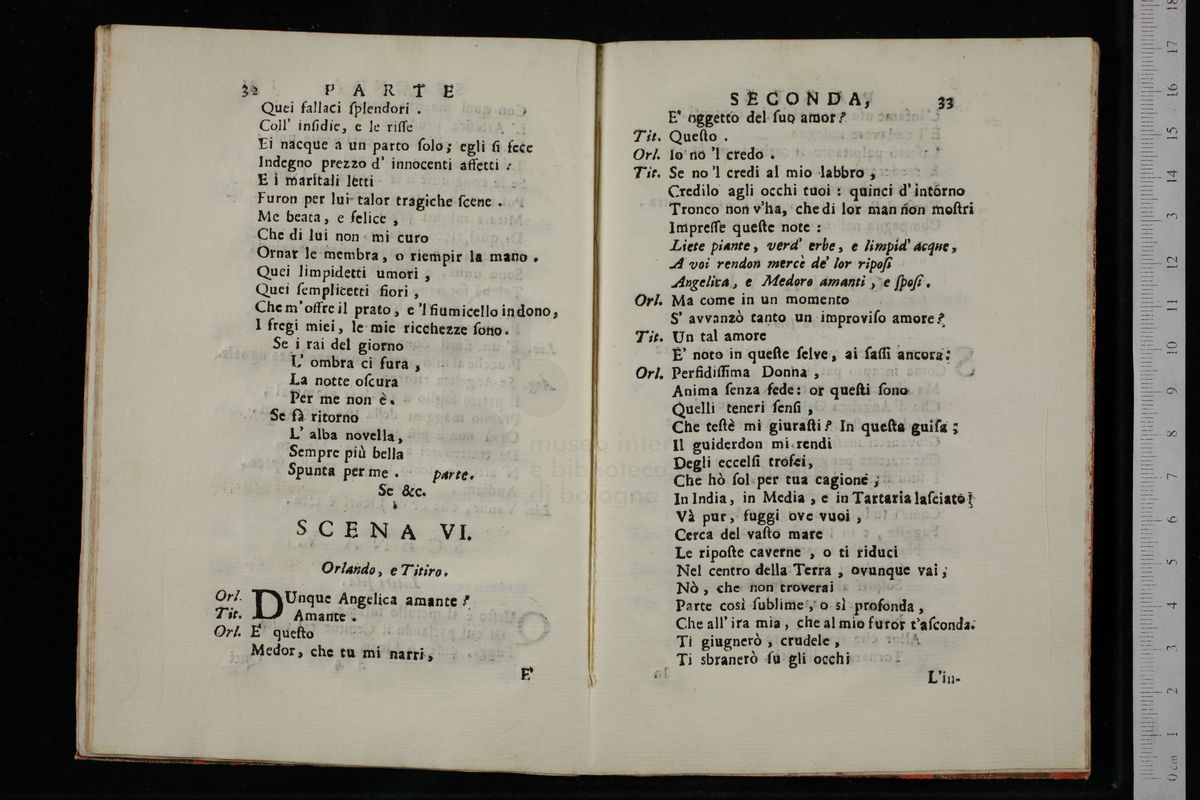 32 PARTE
Quei fallaci ſplendori .
Coll' inſidie, e le riſſe
Ei nacque a un parto ſolo; egli ſi fece
Indegno prezzo d' innocenti affetti :
E i maritali letti
Furon per lui talor tragiche ſcene .
Me beata, e felice ,
Che di lui non mi curo
Ornar le membra, o riempir la mano .
Quei limpidetti umori ,
Quei ſemplicetti fiori ,
Che m'offre il prato, e 'l fiumicello in dono,
I fregi miei, le mie ricchezze ſono.
Se i rai del giorno
L' ombra ci fura ,
La notte oſcura
Per me non è.
Se fà ritorno
L' alba novella,
Sempre più bella
Spunta per me . parte.
Se &c.
SCENA VI.
Orlando, e Titiro.
Orl. DUnque Angelica amante ?
Tit. Amante .
Orl. E' queſto
Medor, che tu mi narri,
E'
SECONDA, 33
E' oggetto del ſuo amor?
Tit. Queſto .
Orl. Io no 'l credo .
Tit. Se no 'l credi al mio labbro ,
Credilo agli occhi tuoi : quinci d' intorno
Tronco non v'ha, che di lor man non moſtri
Impreſſe queſte note :
Liete piante, verd' erbe, e limpid' acque,
A voi rendon mercè de' lor ripoſi
Angelica, e Medoro amanti , e ſpoſi.
Orl. Ma come in un momento
S' avvanzò tanto un improviſo amore?
Tit. Un tal amore
E' noto in queſte ſelve, ai ſaſſi ancora:
Orl. Perfidiſſima Donna ,
Anima ſenza fede: or queſti ſono
Quelli teneri ſenſi ,
Che teſtè mi giuraſti? In queſta guiſa ;
Il guiderdon mi rendi
Degli eccelſi trofei,
Che hò ſol per tua cagione ;
In India, in Media , e in Tartaria laſciato?
Và pur, fuggi ove vuoi ,
Cerca del vaſto mare
Le ripoſte caverne , o ti riduci
Nel centro della Terra , ovunque vai ;
Nò , che non troverai
Parte così ſublime , o sì profonda ,
Che all' ira mia , che al mio furor t'aſconda.
Ti giugnerò , crudele ,
Ti sbranerò ſu gli occhi
L'in-